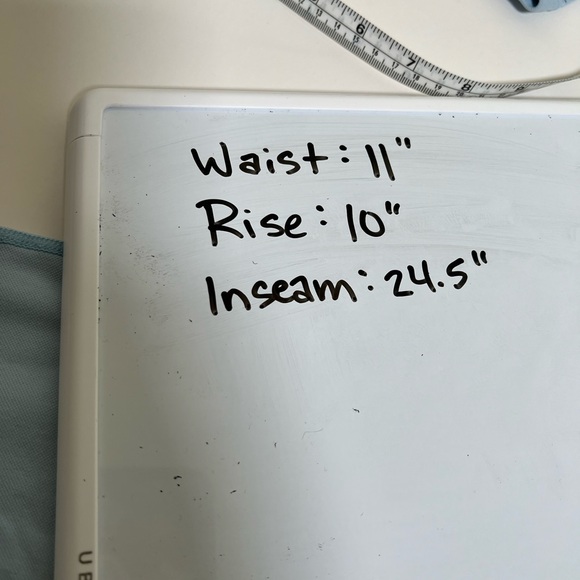 6
7
8
Waist: 11"
Rise: 10"
Inseam: 24.5"